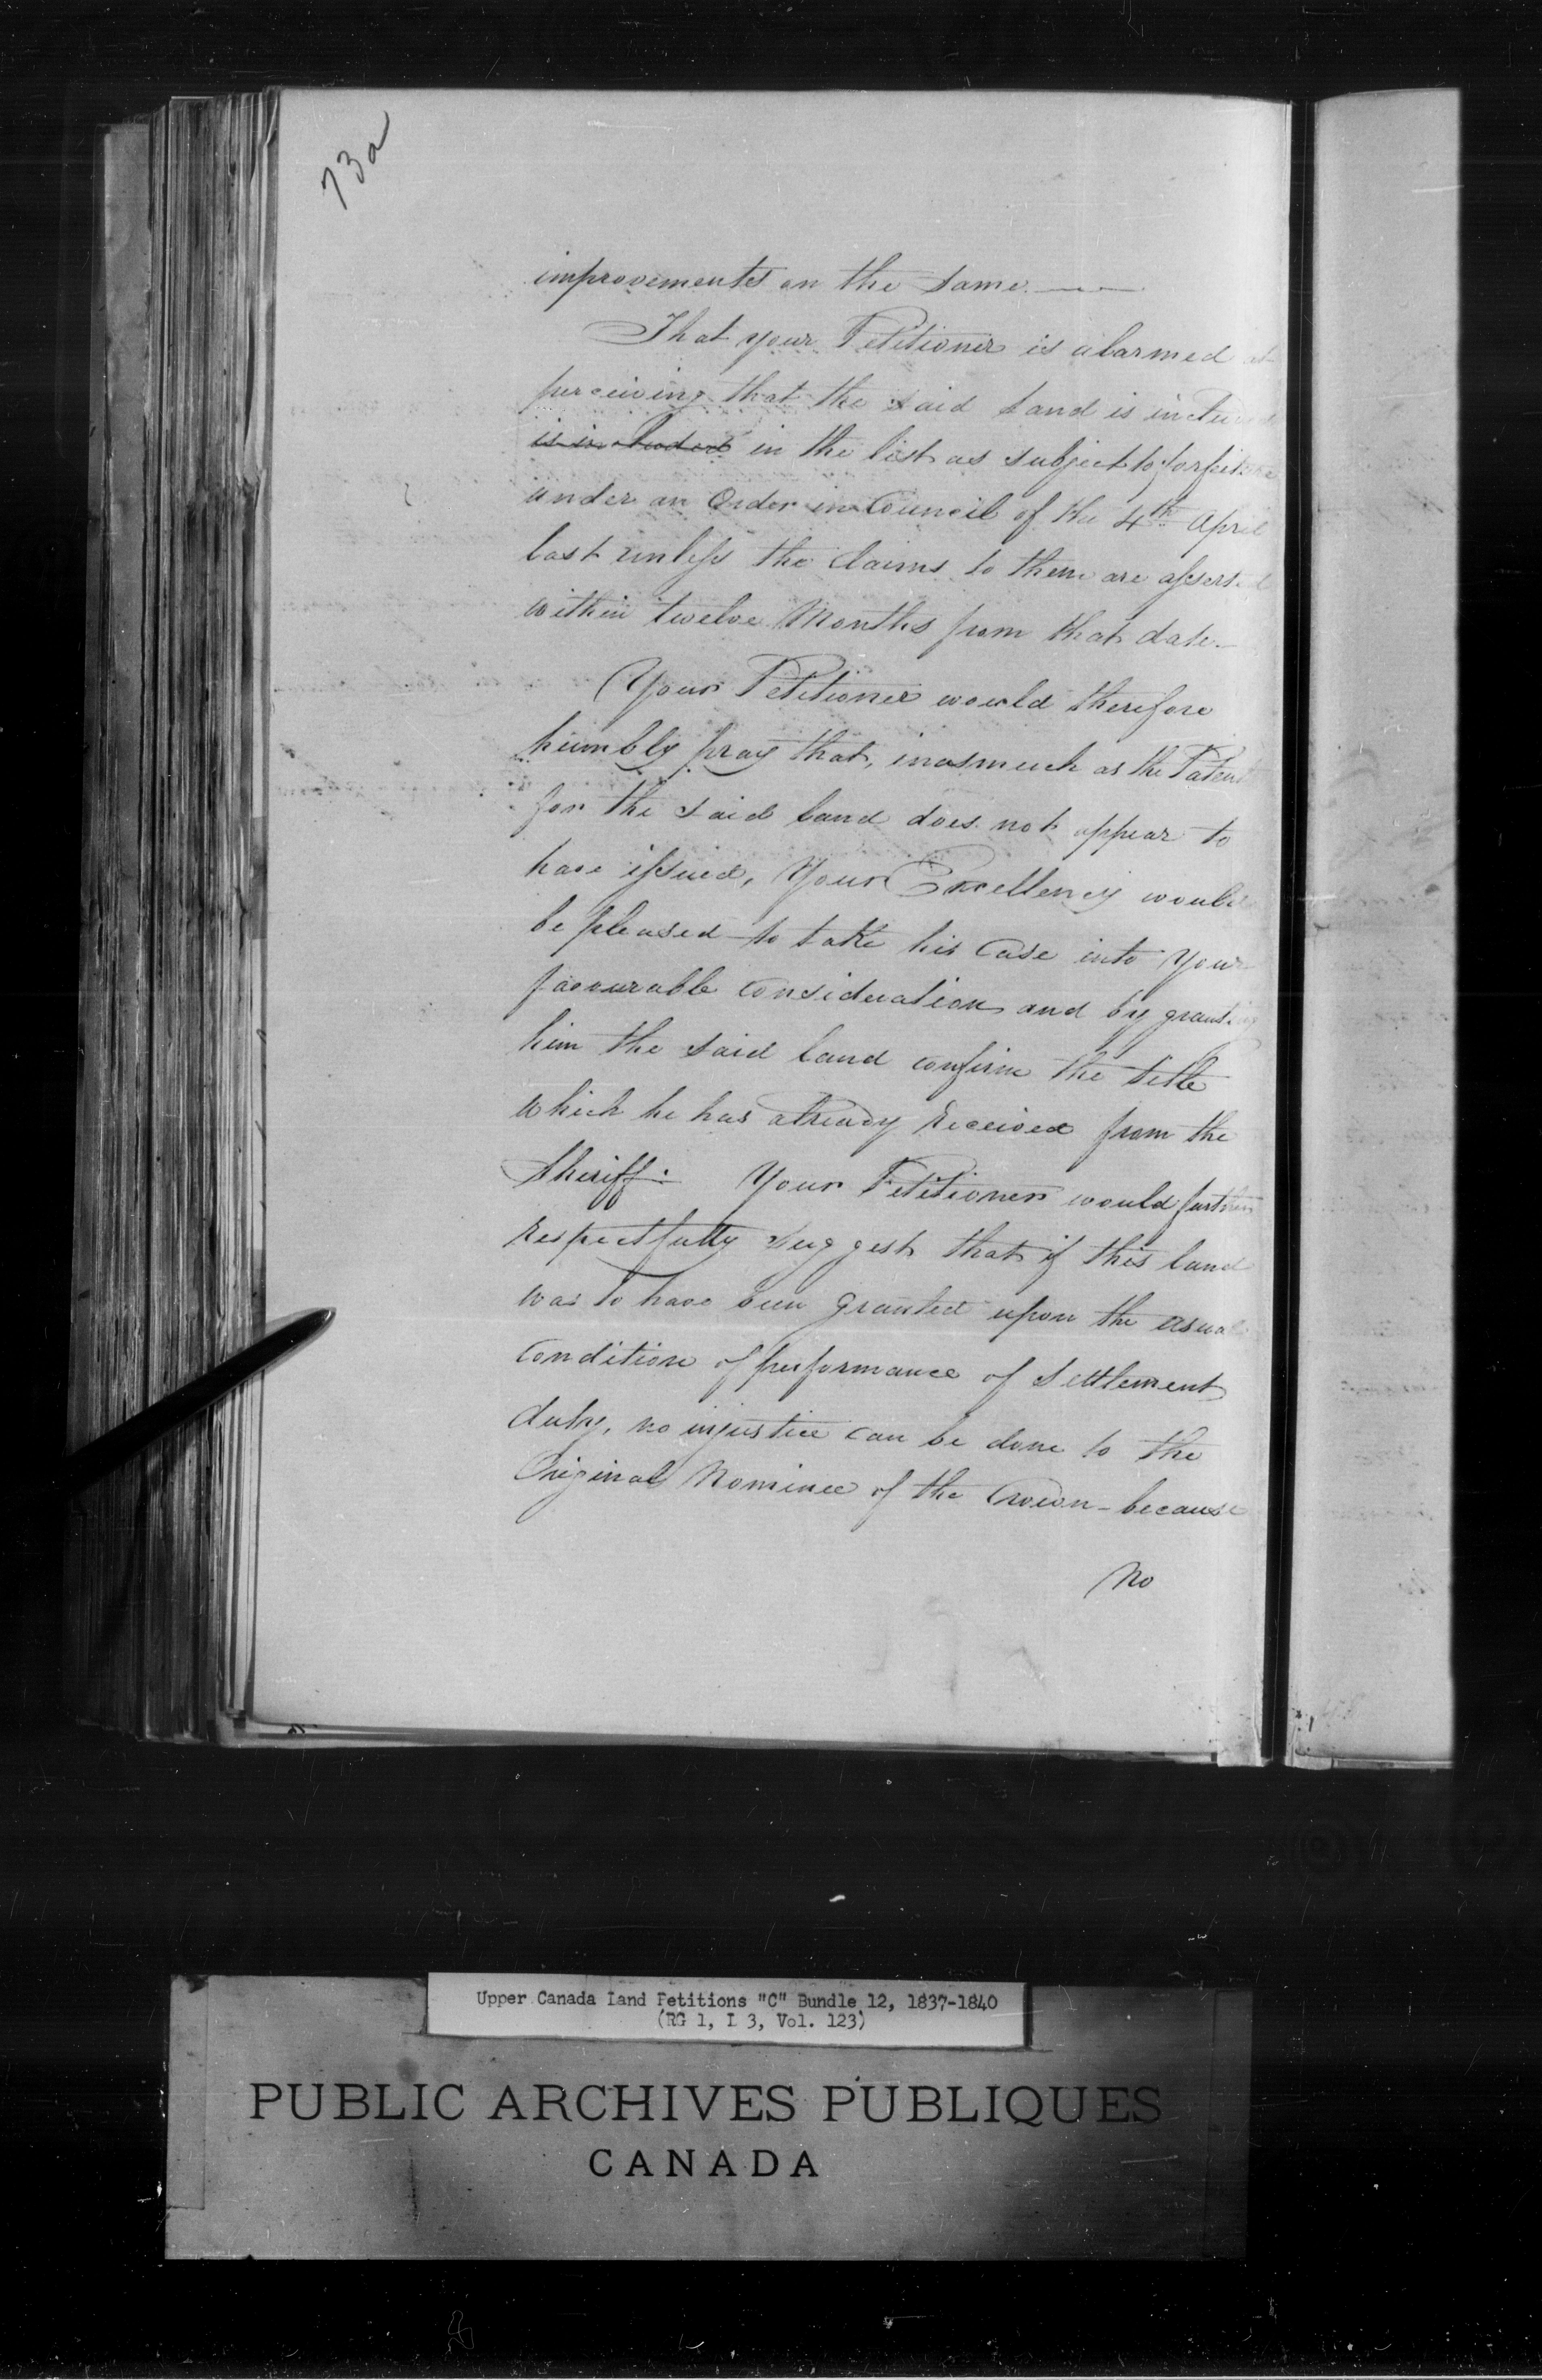 73a
improvements on the same.
That your Petitioner is alarmed at
perceiving that the said Land is included
is included in the list as subject to forfeiture
under an Order in Council of the 4th April
last unless the claims to them are asserted
within twelve Months from that date.
Your Petitioner would therefore
humbly pray that, inasmuch as the Patent
for the said land does not appear to
have issued, Your Excellency would
be pleased to take his Case into Your
favourable consideration and by granting
him the said land confirm the title
which he has already received from the
Sheriff. Your Petitioner would further
respectfully suggest that if this land
was to have been granted upon the usual
condition of performance of Settlement
duty, no injustice can be done to the
Original Nominee of the Crown - because
No
Upper Canada Land Petitions "C" Bundle 12, 1837-1840
(RG 1, L 3, Vol. 123)
PUBLIC ARCHIVES PUBLIQUES
CANADA